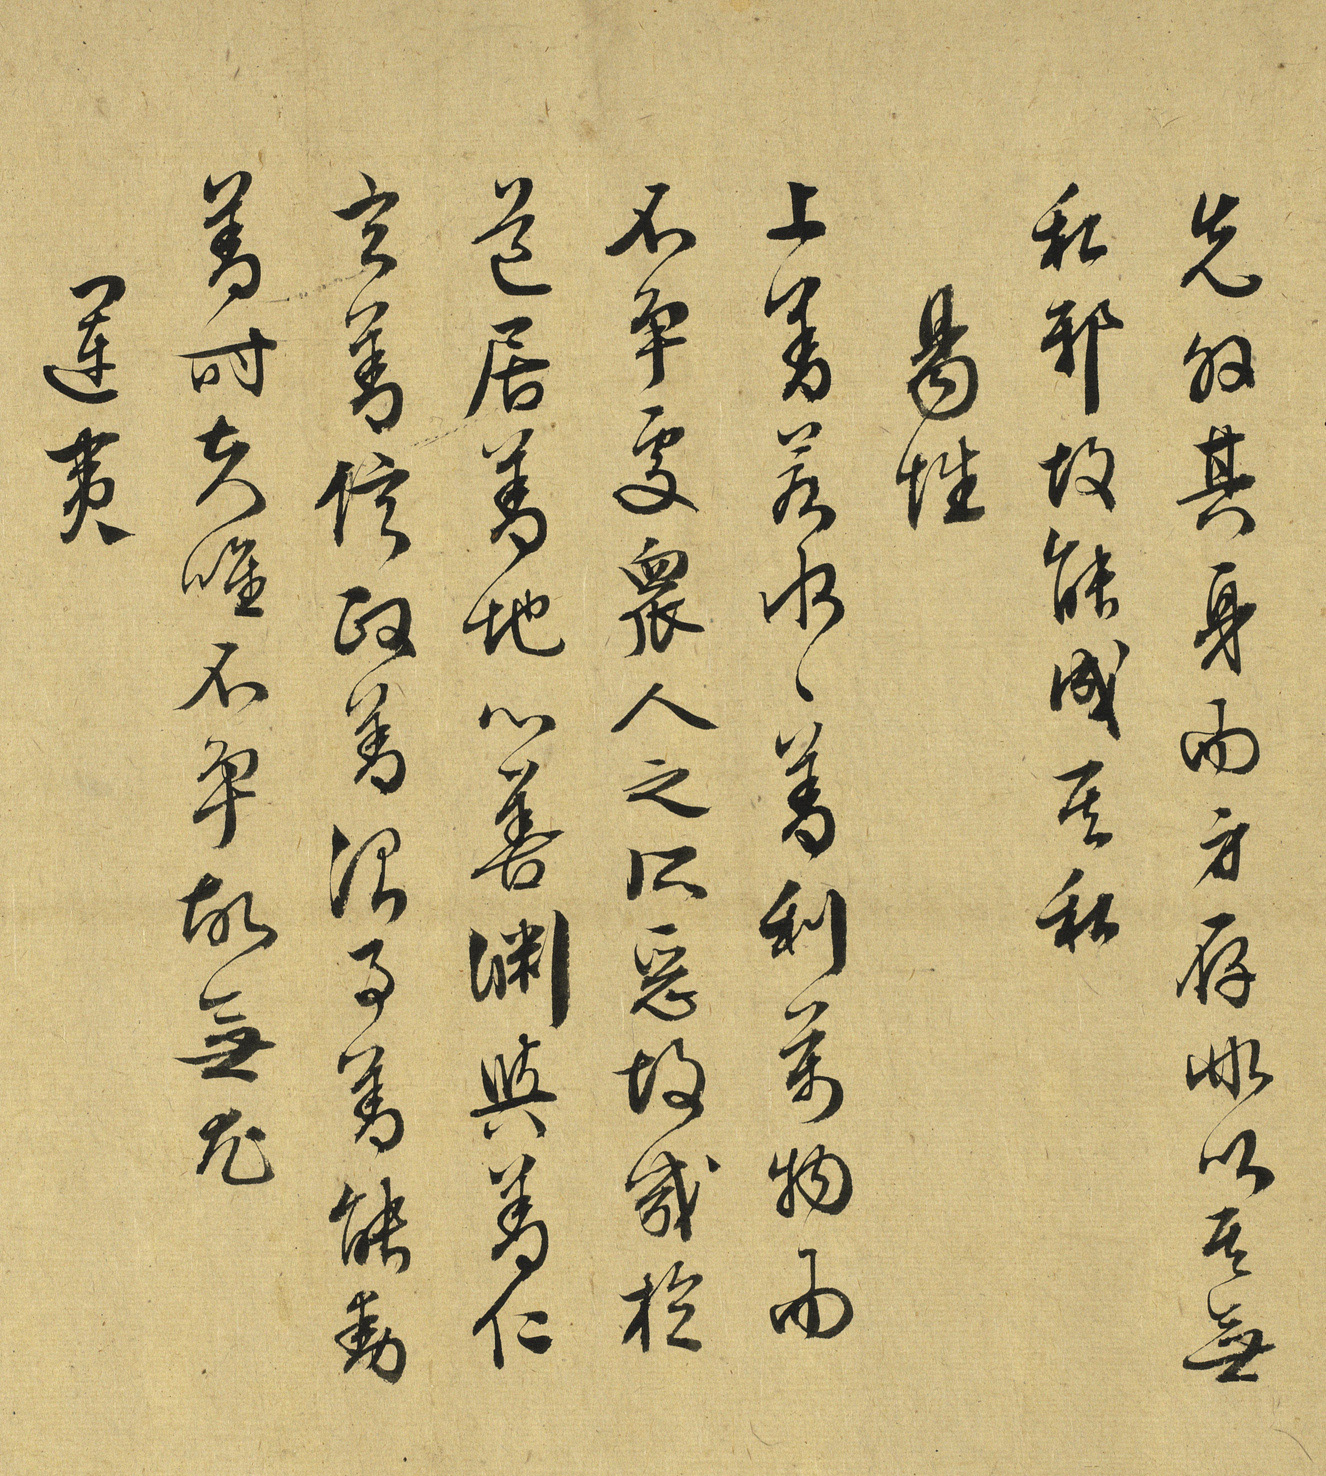 先外其身而身存非以其無
私邪故能成其私
易性
上善若水〻善利萬物而
不爭處衆人之所惡故幾於
道居善地心善淵與善仁
言善信政善治事善能動
善時夫唯不爭故無尤
運夷